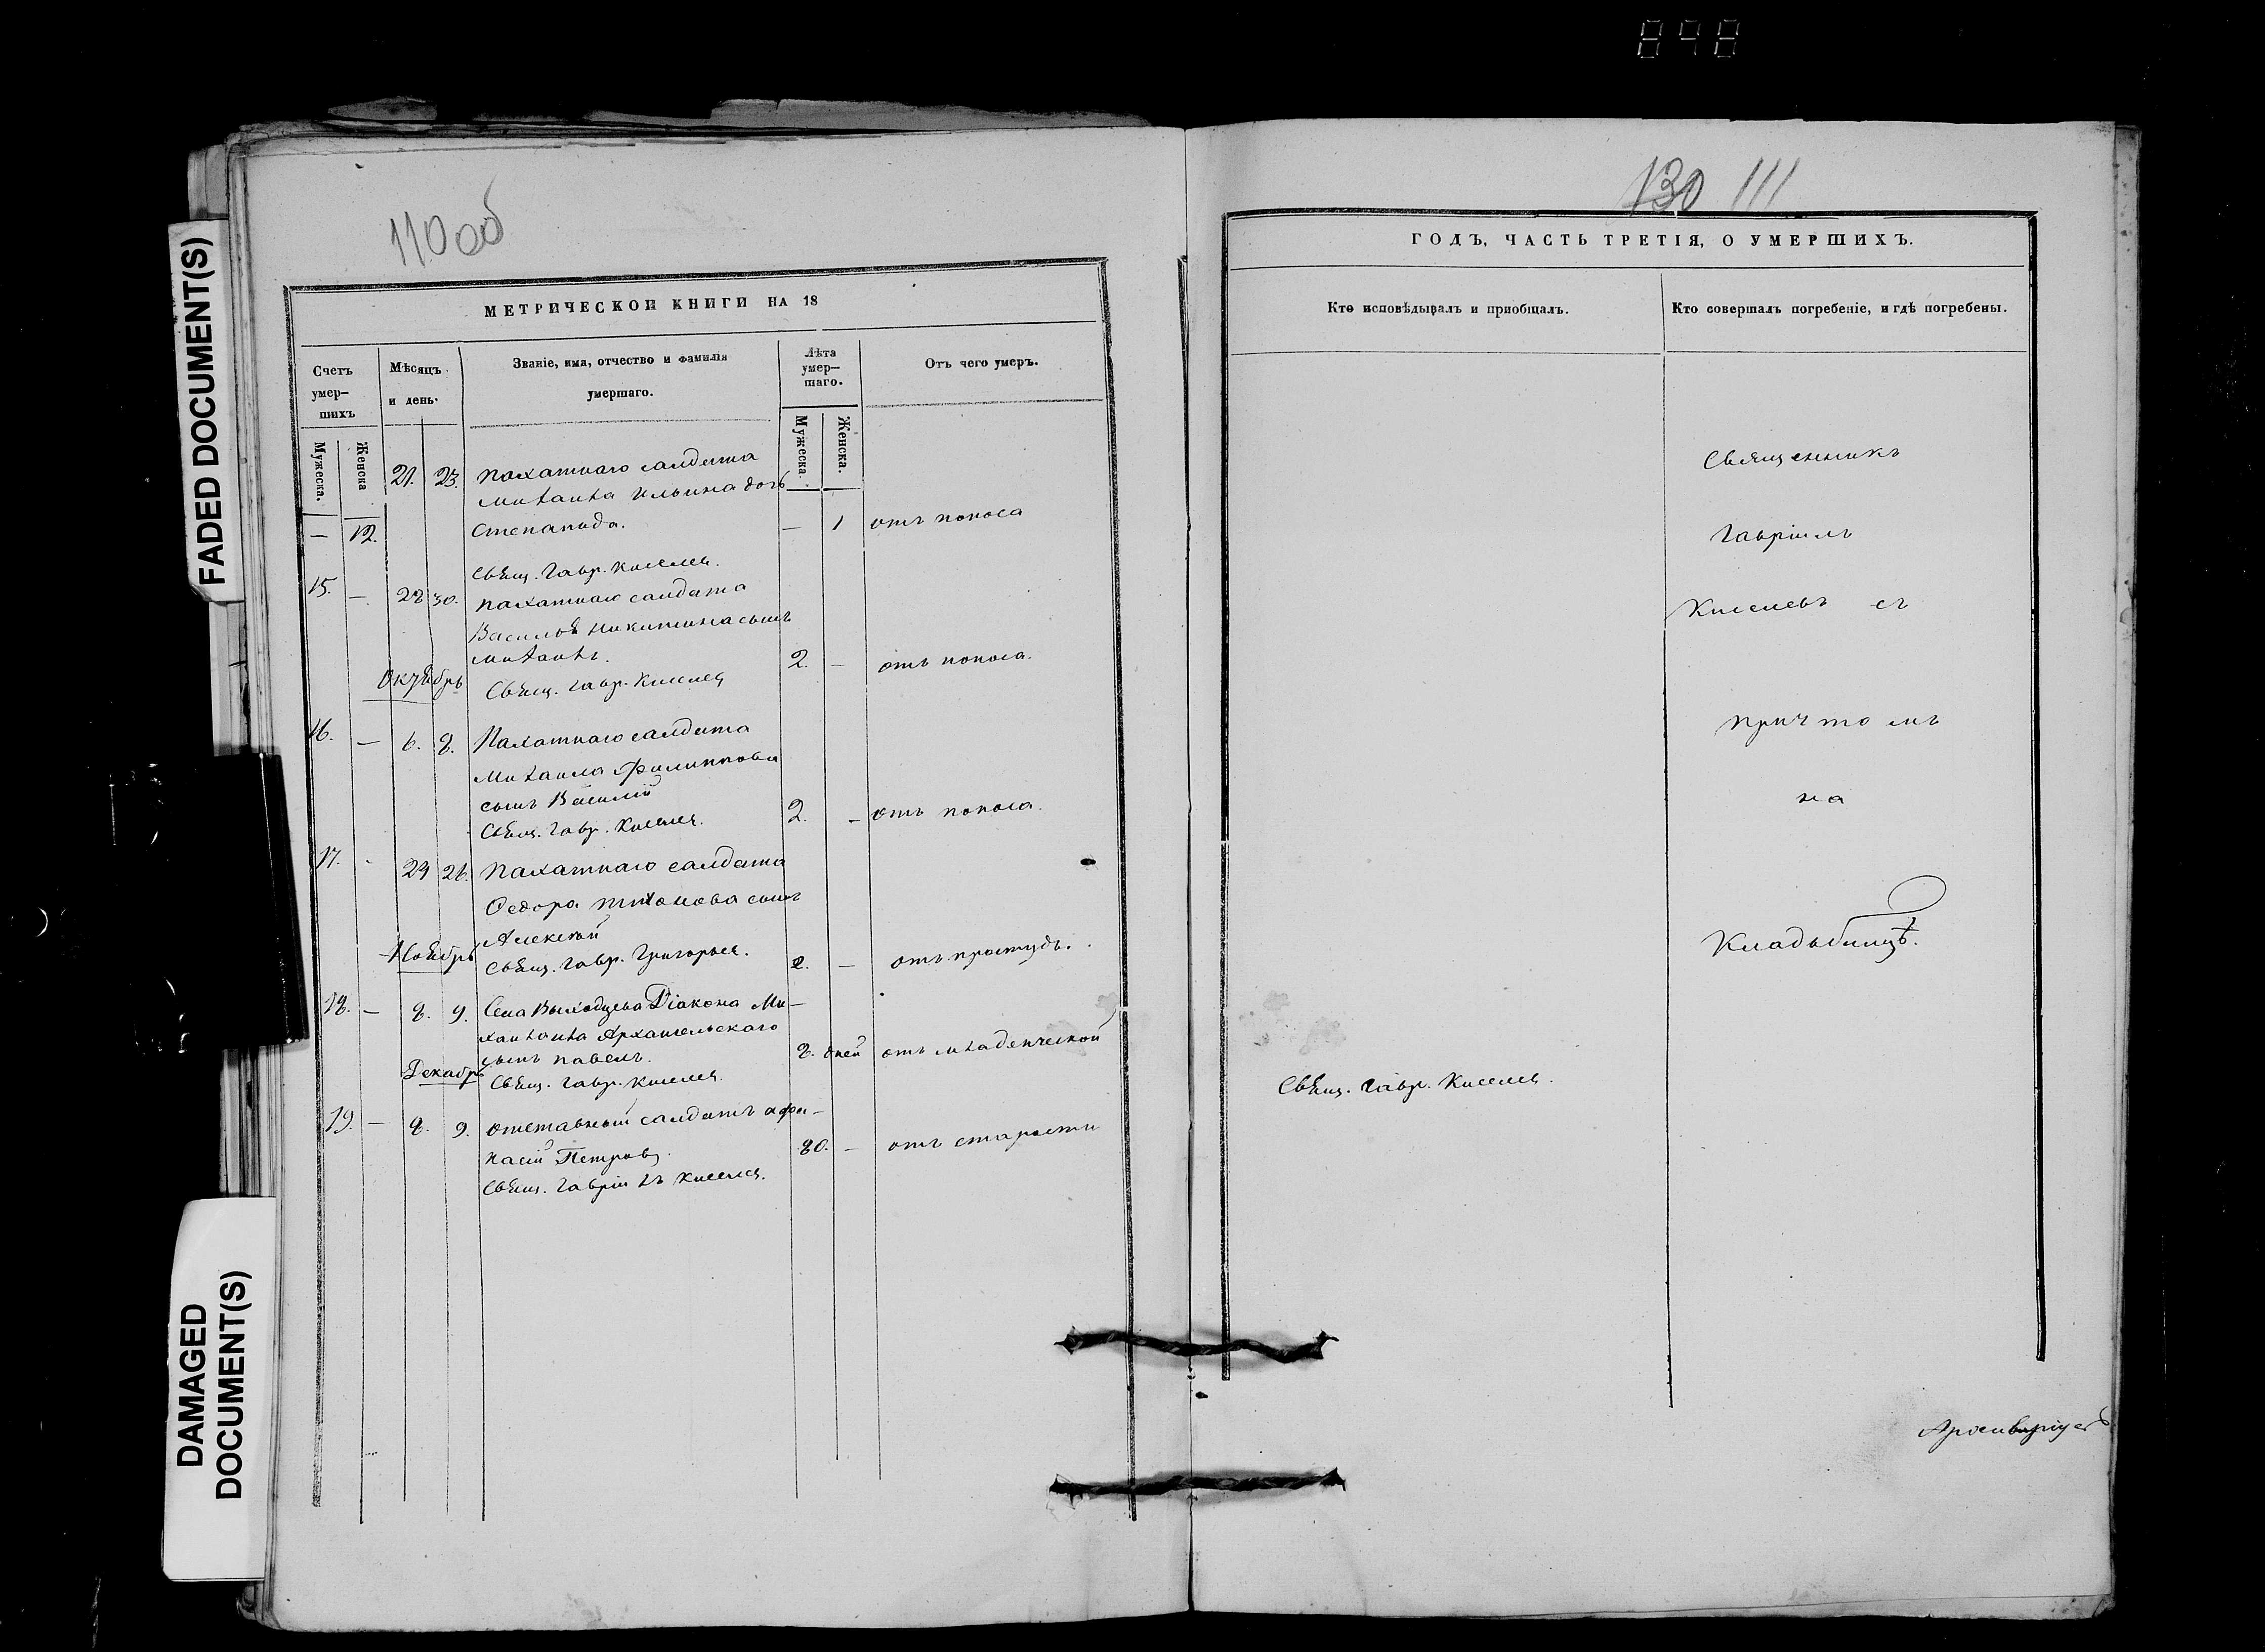 898
FADED DOCUMENT(S)
DAMAGED
DOCUMENT(S)
110 об
МЕТРИЧЕСКОЙ КНИГИ НА 18
Счетъ
умер–
шихъ
Мѣсяцъ
и день.
Званіе, имя, отчество и фамилія
умершаго.
Лѣта
умер–
шаго.
Отъ чего умеръ.
Мужеска.
Женска
Мужеска.
Женска.
21. 23. пахатнаго салдата
михаила Ильина дочь
— 12. Степанида. — 1 отъ поноса
Свящ. Гавр. Киселев.
15. — 28 30. пахатнаго салдата
Василья никитина сынъ
михаилъ. 2. — отъ поноса.
Октябрь
Свящ. Гавр. Киселев
16. — 6. 8. Пахатнаго салдата
Михаила Филиппова
сынъ Василій
Свящ. Гавр. Киселев. 2. — отъ поноса.
17. - 24 26. пахатнаго салдата
Ѳедора тихонова сынъ
Алексѣй
Ноябрь
Свящ. Гавр. Григорьев. 2. — отъ простуды.
18. — 8. 9. Села Выходцева Діакона Ми–
хаила Архангельскаго
сынъ павелъ. 8. дней отъ младенческой
Декабрь
Свящ. Гавр. Киселев.
19. — 8. 9. отставный салдатъ афа–
насій Петров. 80. — отъ старости
Свящ. Гавріилъ Киселев.
130 111
ГОДЪ, ЧАСТЬ ТРЕТІЯ, О УМЕРШИХЪ.
Кто исповѣдывалъ и пріобщалъ.
Кто совершалъ погребеніе, и гдѣ погребены.
Священникъ
Гавріилъ
Киселевъ съ
причтомъ
на
Кладбищѣ.
Свящ. Гавр. Киселев.